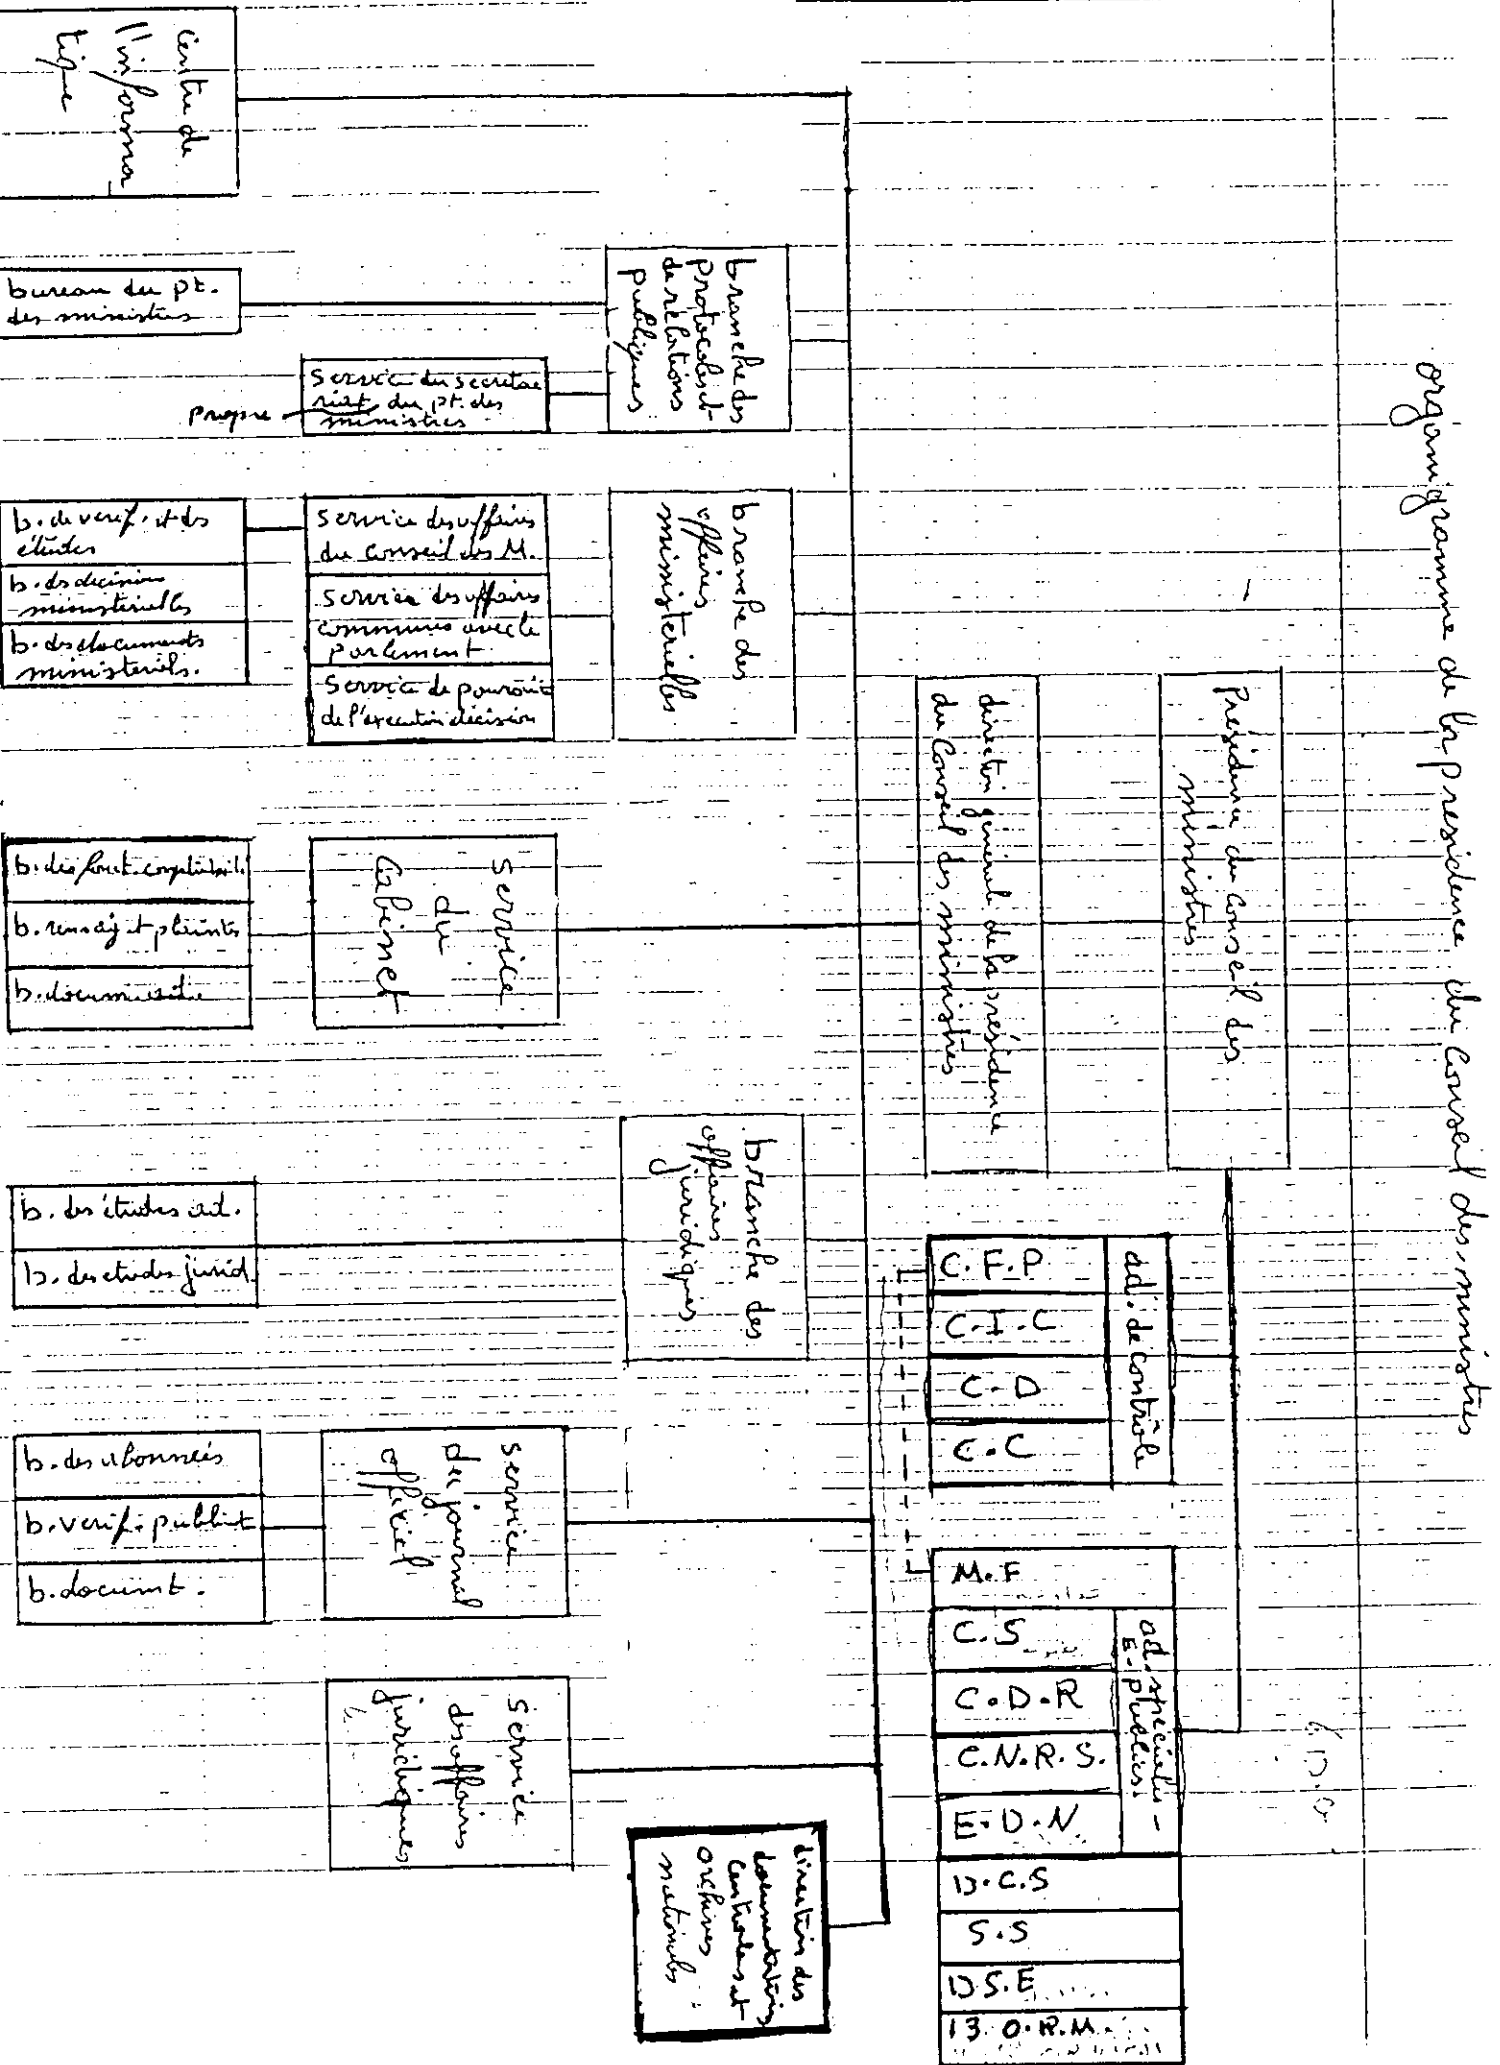 organigramme de la présidence du Conseil des ministres
Présidence du Conseil des
ministres
direction générale de la présidence
du Conseil des ministres
ad. de contrôle
C.F.P
C.I.C
C.D
C.C
M.F
ad. spéciales -
E. publics.
C.S
C.D.R
C.N.R.S.
E.D.N.
D.C.S
S.S
D.S.E
B.O.R.M.
Centre de
l'informa_
tique
branche des
protocoles et
de relations
publiques
bureau du pt.
des ministres
service du secréta
riat du pt. des
ministres
propre
branche des
affaires
ministerielles
service des affaires
du conseil des M.
service des affaires
communes avec le
parlement.
service de poursuite
de l'execution décision
b. de verif. et des
études
b. des decisions
ministerielles
b. des documents
ministeriels.
service
du
Cabinet
b. des font. comptabil.
b. renseig. et plaintes
b.
branche des
affaires
juridiques
b. des études ad.
b. des etudes jurid.
service
du journal
officiel
b. des abonnés
b. verif. publicat
b. documt.
service
des affaires
juridiques
direction des
documentations
centrales et
archives
nationales